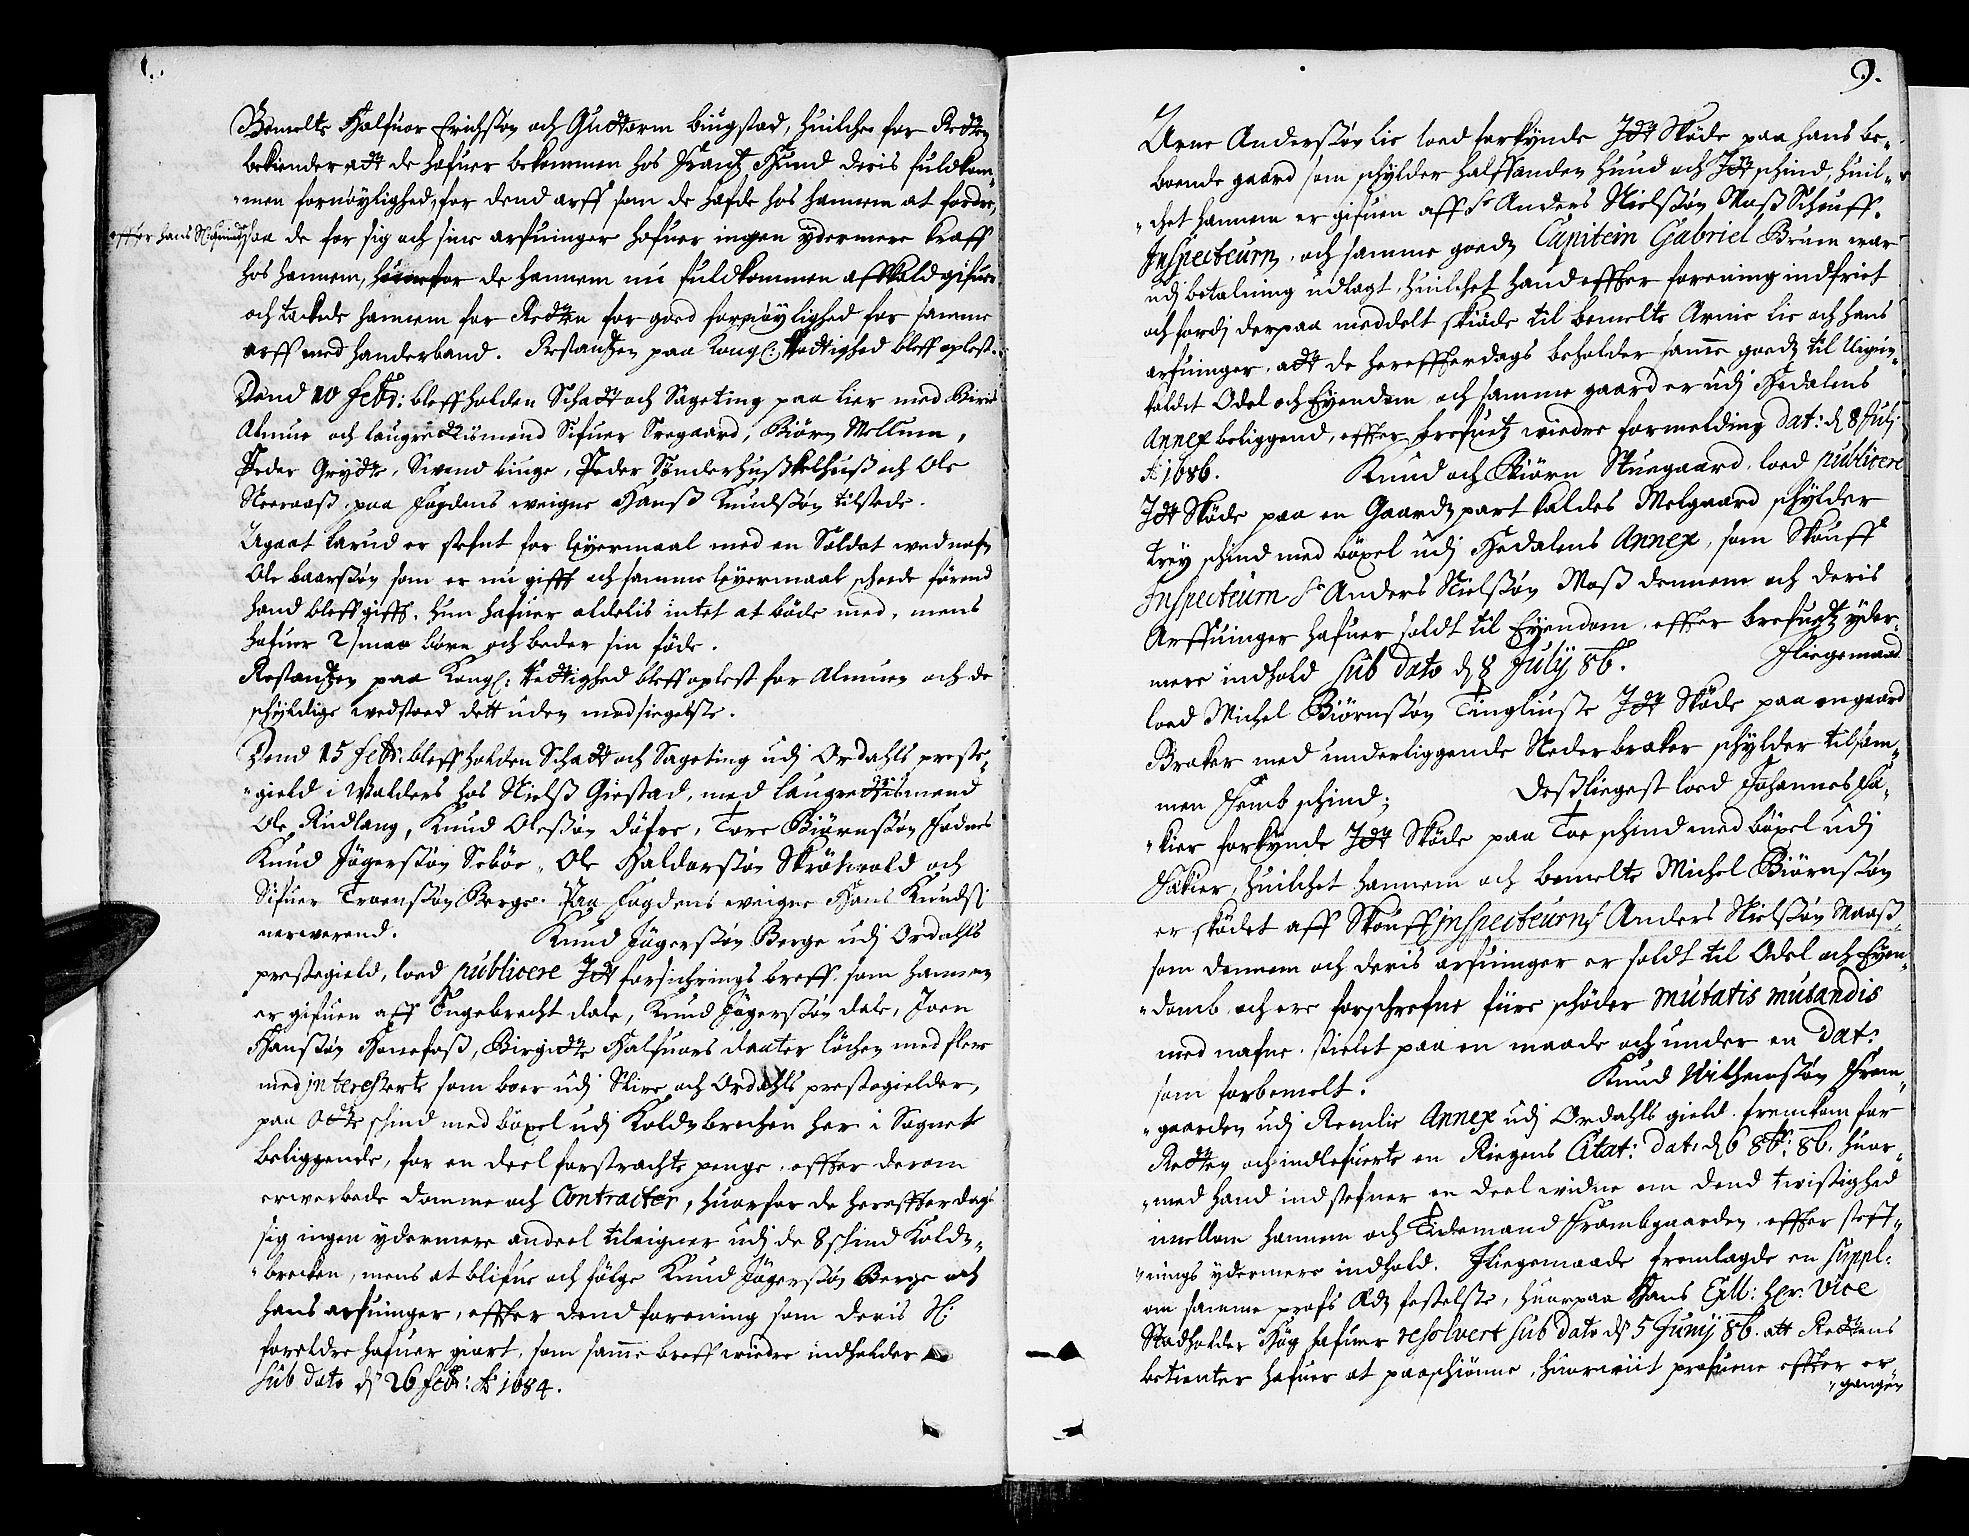 Bemelte Halfuor Erichssøn och Guttorm biugstad, huilche for Retten
bekiender att de hafuer bekommen hos Frantz Hund deris fuldkom„
„men fornøylighed, for dend arff som de hafde hos hannem at fordre,
effter hans Sl:
saa de for sig och sine arfuinger hafuer ingen ydermere kraff
hos hannem, huorfor de hannem nu fuldkommen afkald gifuer
och tackede hannem for Retten for goed fornøylighed for samme
arff med handerband. Restantzen paa Kongl: Rettighed bleff oplest.
Dend 10 febr: bleff holden Schatt och Sageting paa Lier med Biris
Almue och laugrettismend Sifuer Sregaard, Biørn Mellum,
Peder Grytte, Swend linge, Peder Sønderhuß Kelhuß och Ole
Neeraaß, paa fogdens weigne Hanß Knudssøn tilstede.
Agaat Larud er stefnt for leyermaal med en Soldat wed nafn
Ole baarssøn som er nu gifft och samme leyermaal scheede førend
hand bleff gifft. hun hafuer aldelis intet at bøde med, mens
hafuer 2 smaa børn och beder sin føde.
Restantzen paa Kongl: Rettighed bleff oplest for Almuen och de
schyldige wedstoed dett uden modsigelse.
Dend 15 febr: bleff holden Schatt och Sageting udj Ordahls preste„
„gield i Walders hos Nielß Giestad, med laugrettismend
Ole Rudlang, Knud Olessøn døfre, Tore Biørnssøn Fodnes
Knud Jøgerssøn Sebøe, Ole Haldorssøn Skrøtwold och
Sifuer Troenssøn Berge. Paa fogdens weigne Hans Knuds:
nerwerend. Knud Jøgerssøn Berge udj Ordahls
prestegield, loed publicere Jdt forsichrings breff som hannem
er gifuen aff Engebrecht dale, Knud Jøgerssøn dale, Joen
Hanssøn Honefoß, Birgitte Halfuors daater løchen med flere
med interesserte som boer udj Slire och Ordahls prestegielder,
paa Otte schind med bøxel udj Koldsbrechen her i Sognet
beliggende, for en deel forstrachte penge, effter derom
erwerbede domme och Contracter, huorfor de hereffterdags
sig ingen ydermere andeel tileigner udj de 8 schind Kolds„
„brecken, mens at blifue och følge Knud Jøgerssøn Berge och
hans arfuinger, effter dend forening som deris Sl:
foreldre hafuer giort, som samme breff wiedre indholder
sub dato dß 26 febr: Ao 1684.
9.
Arne Anderssøn lie loed forkynde Jdt Skøde paa hans be„
boende gaard som schylder halffanden hund och Jdt schind, huil„
„chet hannem er gifuen aff Sr Anders Nielssøn Maß Schouff.
Inspecteurn, och samme goedz Capitein Gabriel Bruen war
udj betalning udlagt, huilchet hand effter forening indfriet
och fordj derpaa meddelt skiøde til bemelte Arnie Lie och hans
arfuinger, att de hereffterdags beholder samme goedz til
Odel och Eyendom och samme gaard er udj Hedalens
Annex beliggend, effter brefuetz wiedre formelding dat: d 8 July
Ao 1686. Knud och Biørn Stuegaard, loed publicere
Jdt Skøde paa en Gaardz part kaldes Melgaard schylder
trey schind med bøxel udj Hedalens Annex, som Skouff
Inspecteurn Sr Anders Nielssøn Maß dennem och deris
Arffuinger hafuer soldt til Eyendom, effter brefuetz yder„
mere indhold sub dato d 8 July 86. Jliegemaade
loed Michel Biørnssøn Tinglinse Jdt Skøde paa en gaard
Braker med underliggende Nederbraker schylder tilsam„
men Femb schind; Deßliegest loed Johannes Fa„
„kier forkynde Jdt Skøde paa Toe schind med bøxel udj
Fakier, huilchet hannem och bemelte Michel Biørnssøn
er skødet aff Skouff inspecteurn Sr Anders Nielssøn Maaß
som dennem och deris arfuinger er soldt til Odel och Eyen„
„domb, och ere forschrefne fiire schøder mutatis mutandis
med nafne, stielet paa en maade och under en dat:
som forbemelt. Knud Withemssøn Frem„
„gaarden udj Remlie Annex udj Ordahls gield, fremkom for
Retten och indlefuerte en Riegens Citat: dato d 6 8br: 86. huor„
„med hand indstefner en deel widne om dend twistighed
imellom hannem och Tidemand Frambgaarden, effter stef„
„nings ydermere indhold. Jliegemaade fremlagde en suppl:
om samme profs fastelse, huorpaa Hans Exll: Hr. Vice
Stadholder Høg hafuer resolvert sub dato dß 5 Junij 86. att Rettens
betienter hafuer at paaschiønne, huorwiit profuene effter er„
„gangen